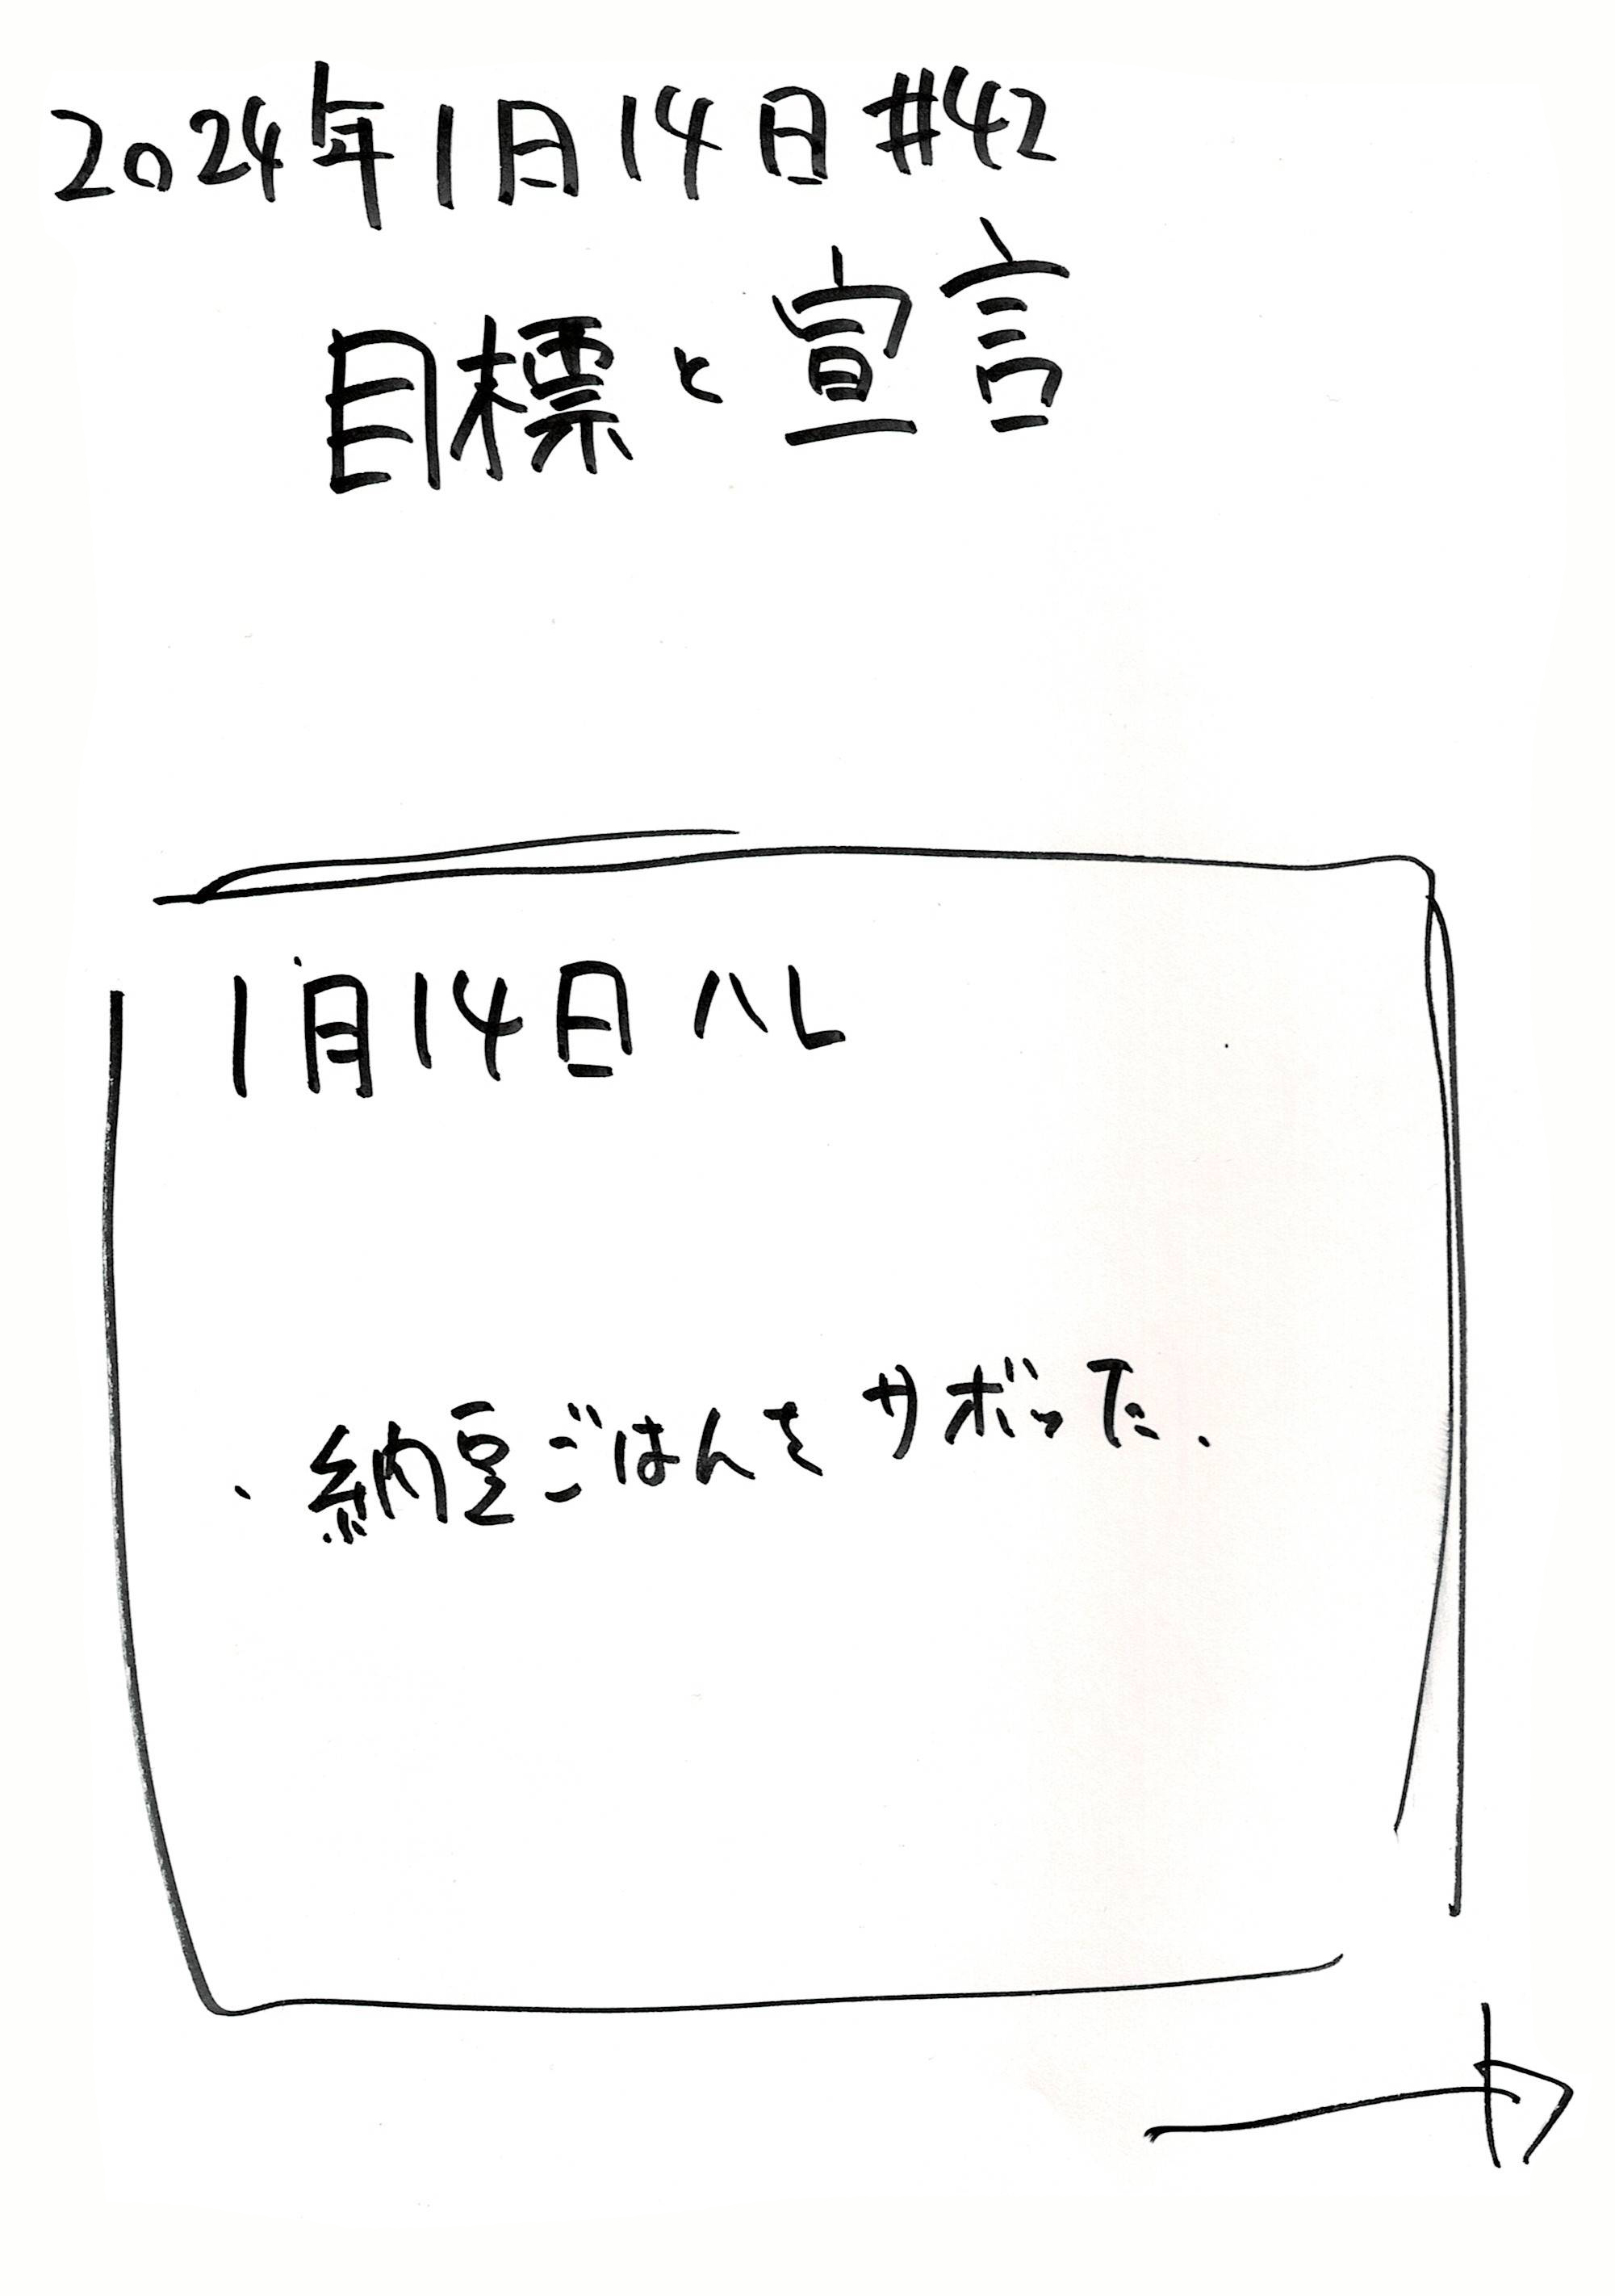 2024年1月14日#42
目標と宣言
1月14日ハレ
・納豆ごはんをサボった.